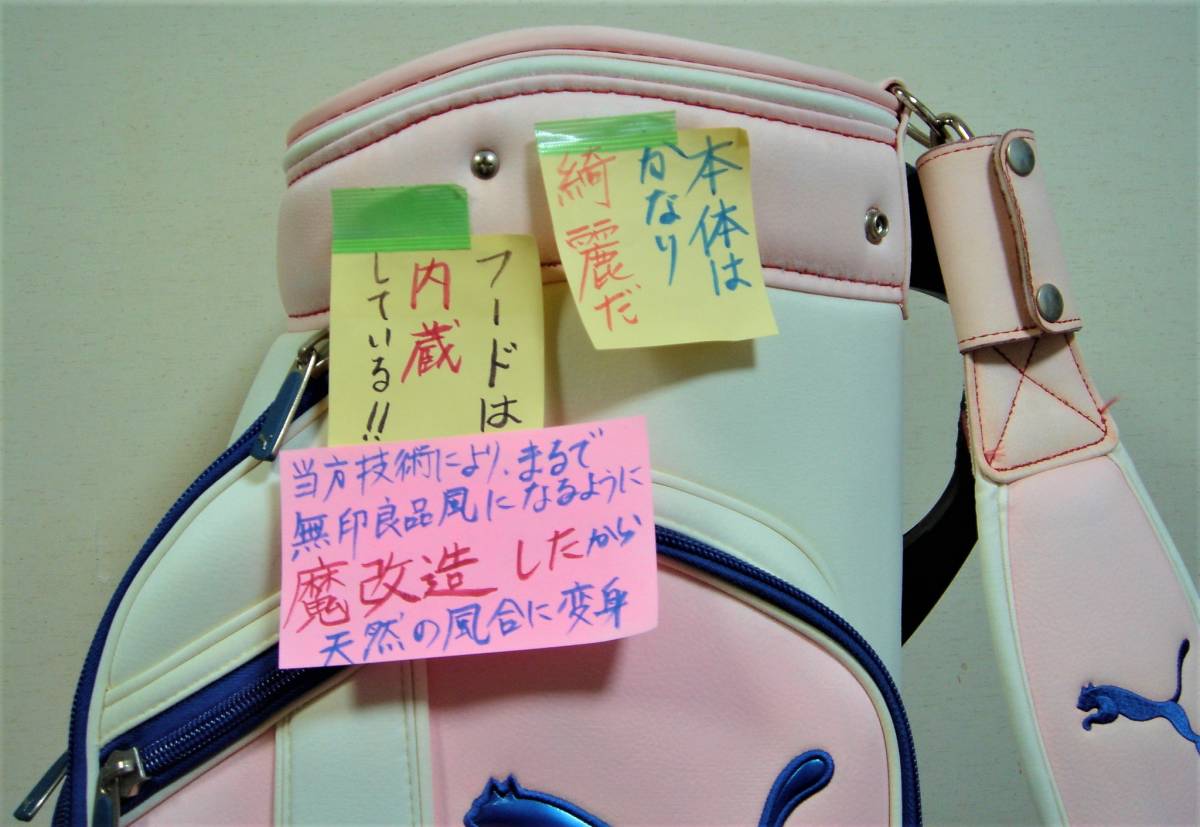 本体は
かなり
綺麗だ
フードは
内蔵
している!!
当方技術により、まるで
無印良品風になるように
魔改造したから
天然の風合に変身